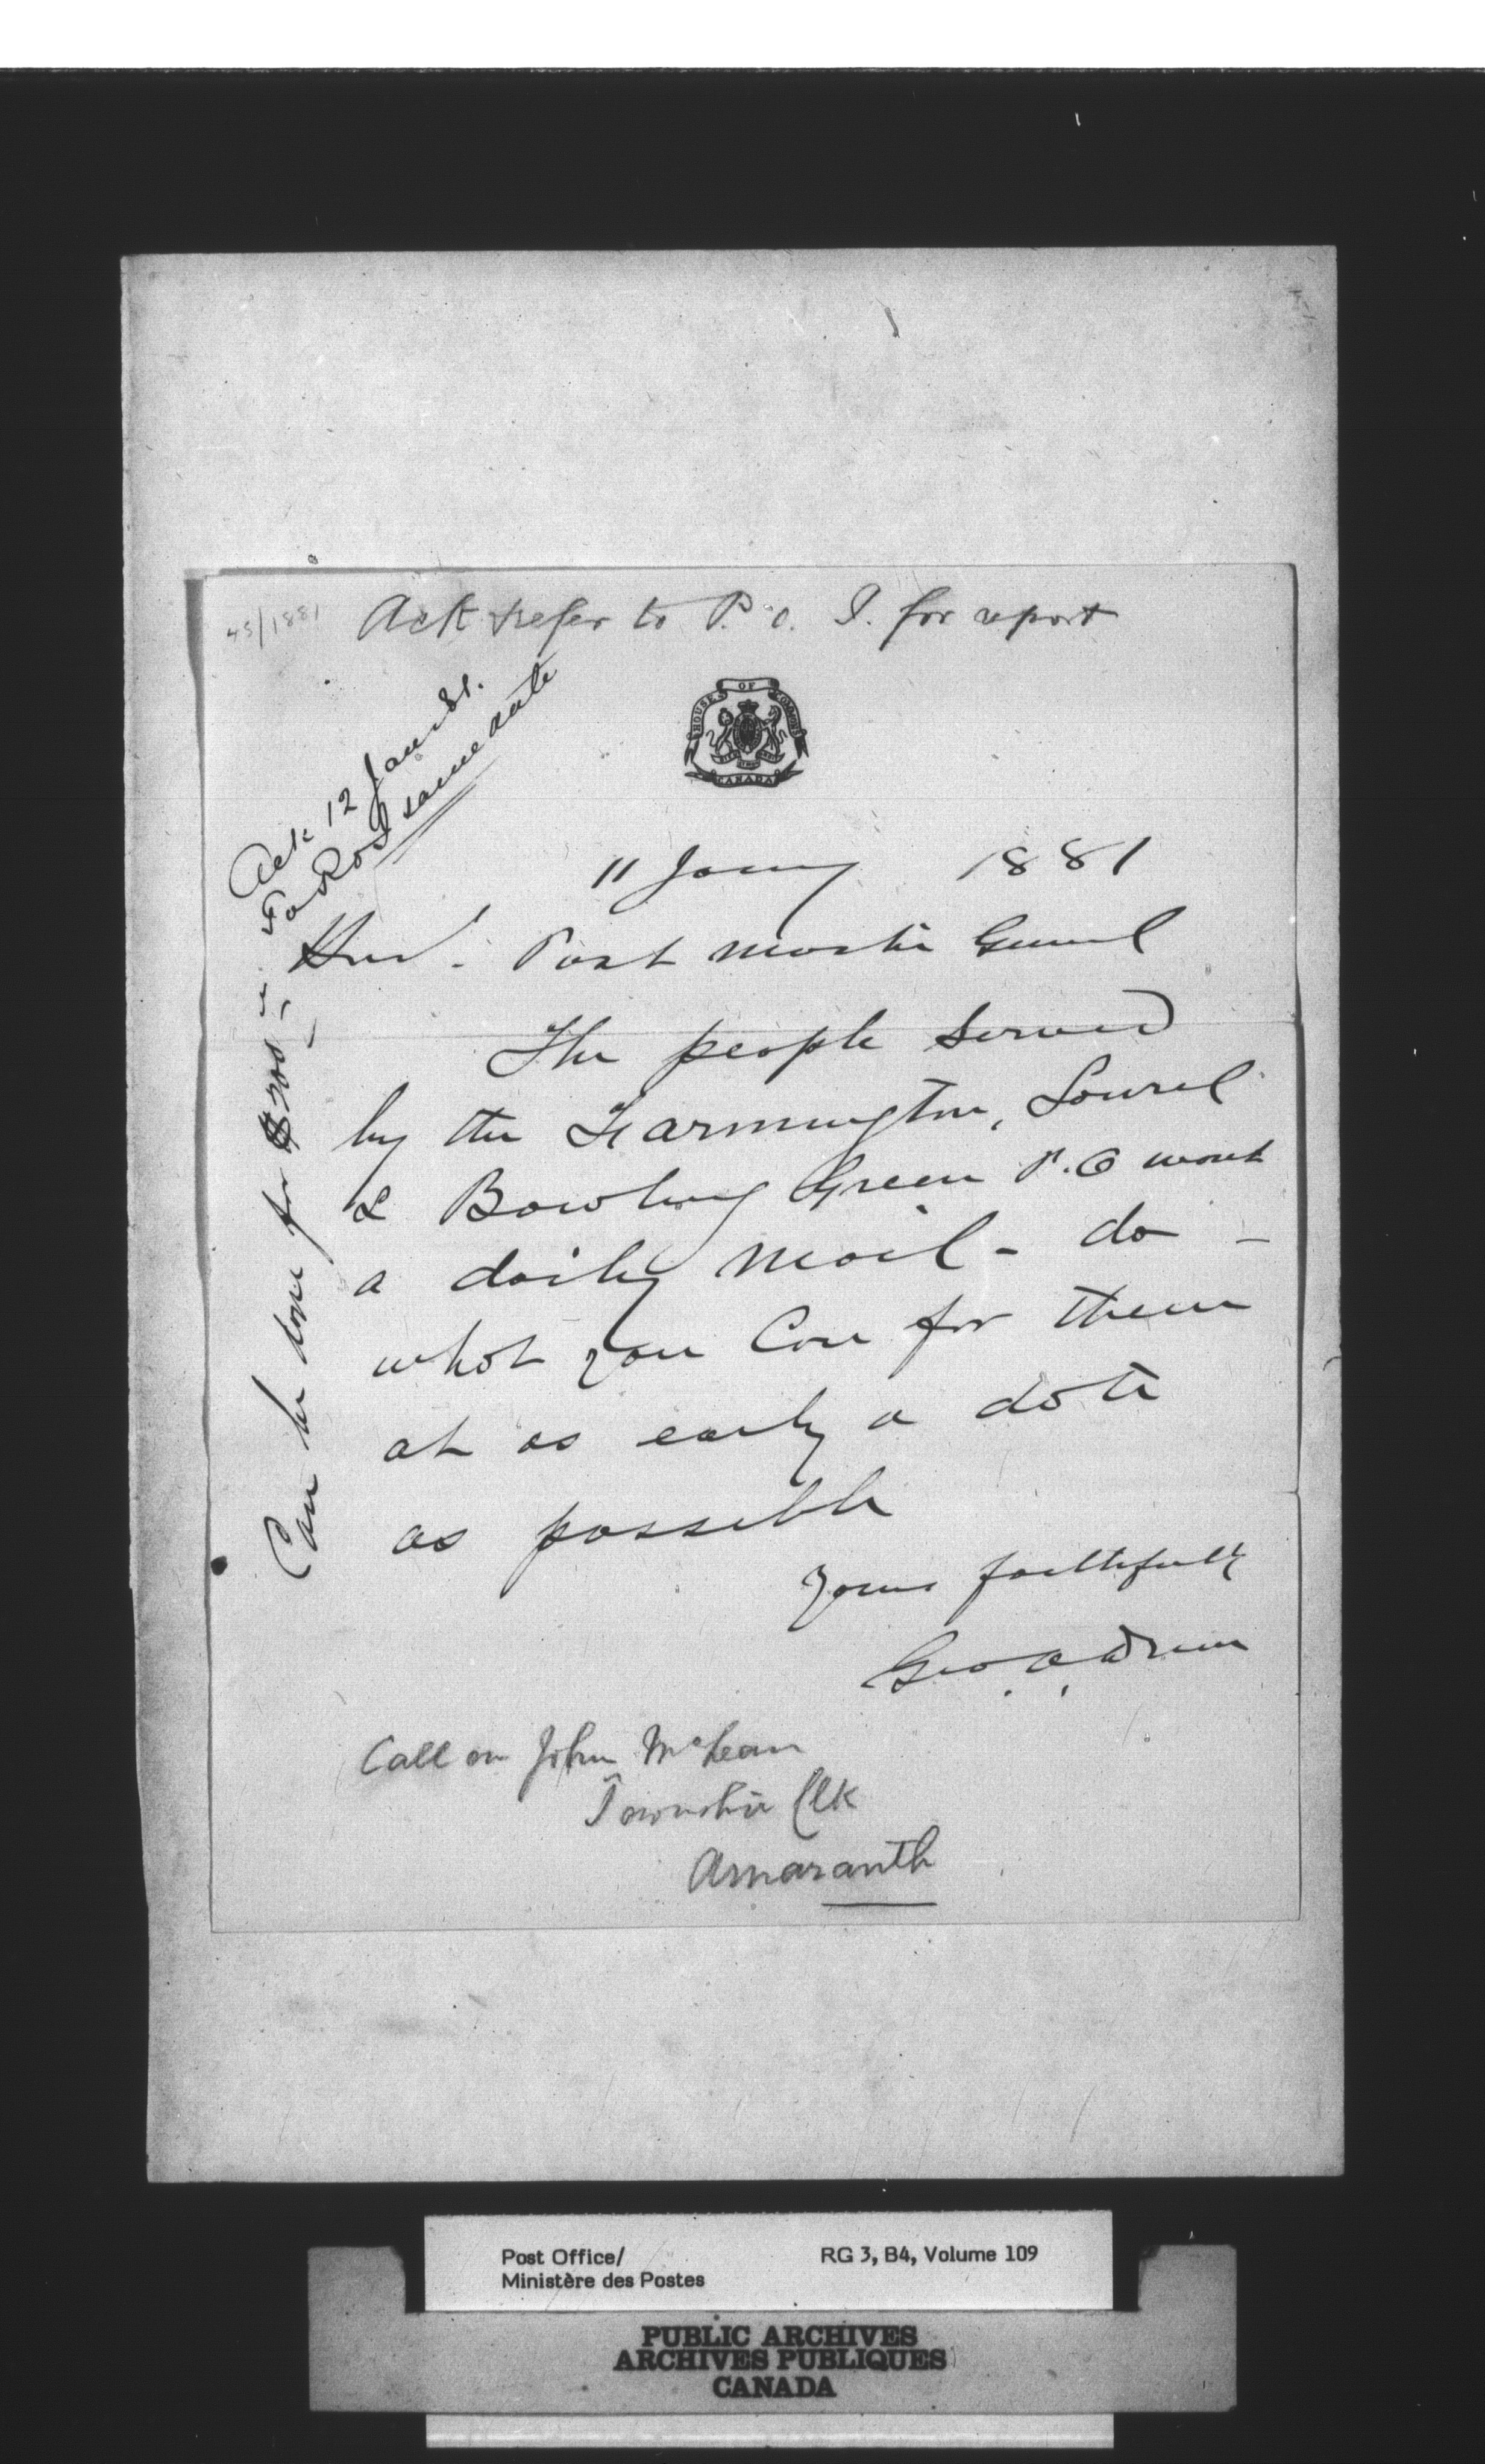 45/1881
Ack & refer to P. O. I. for report
Ack 12 Jany 81.
To P O I same date
HOUSE OF COMMONS
CANADA
11 Jany 1881
Hon. Post Master General
The people served
by the Farmington, Laurel
& Bowling Green P.O want
a daily mail - do -
what you can for them
at as early a date
as possible
Yours faithfully
Geo
Call on John McLean
Township Clk
Amaranth
Can be done for $200
Post Office/ RG 3, B4, Volume 109
Ministère des Postes
PUBLIC ARCHIVES
ARCHIVES PUBLIQUES
CANADA